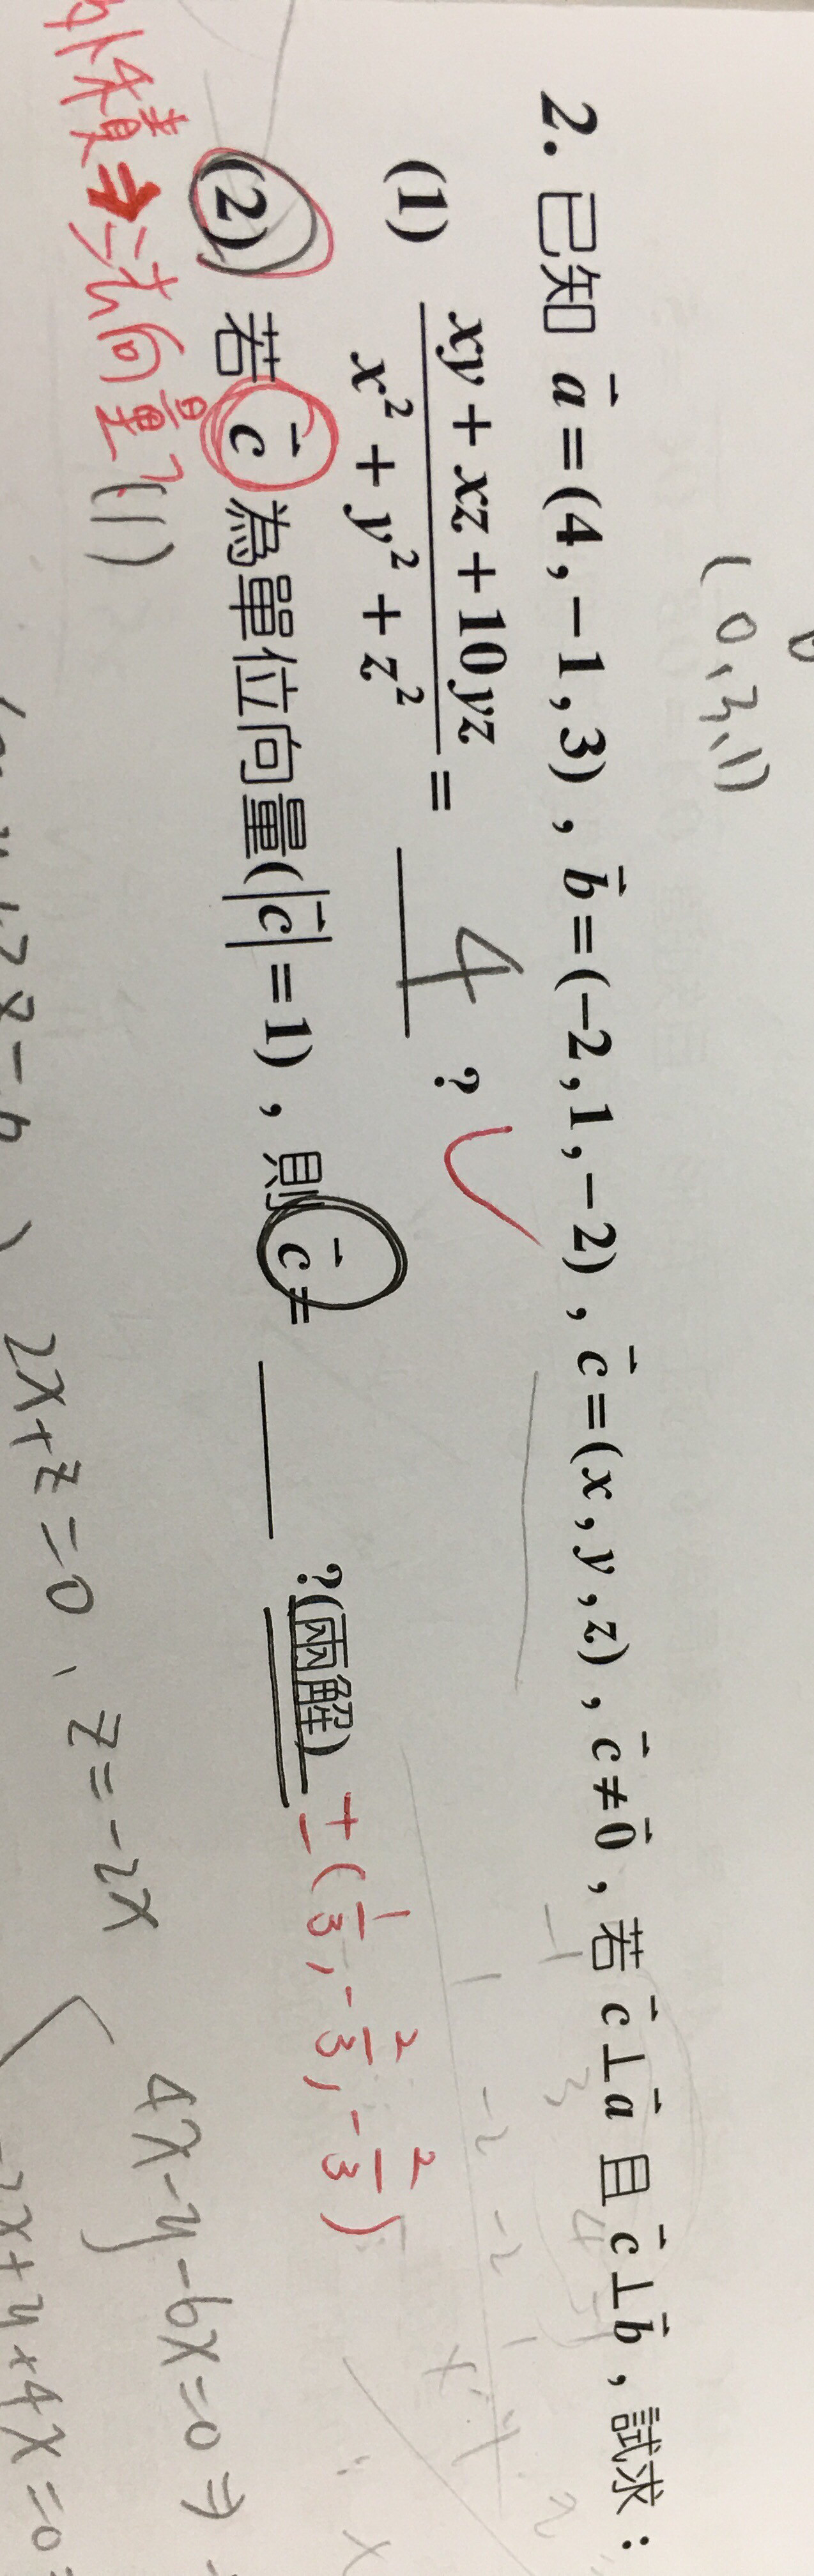 (0,3,1)
2. 已知 a⃗=(4,-1,3), b⃗=(-2,1,-2), c⃗=(x,y,z), c⃗≠0⃗, 若 c⃗⊥a⃗ 且 c⃗⊥b⃗, 試求:
(1) (xy+xz+10yz)/(x²+y²+z²) = 4 ?
(2) 若 c⃗ 為單位向量(|c⃗|=1), 則 c⃗= ____ ?(兩解) ±(1/3, -2/3, -2/3)
外積⇒法向量?
(1)
2x+z=0、z=-2x
4x-y-6x=0⇒
-2x+y+4x=0